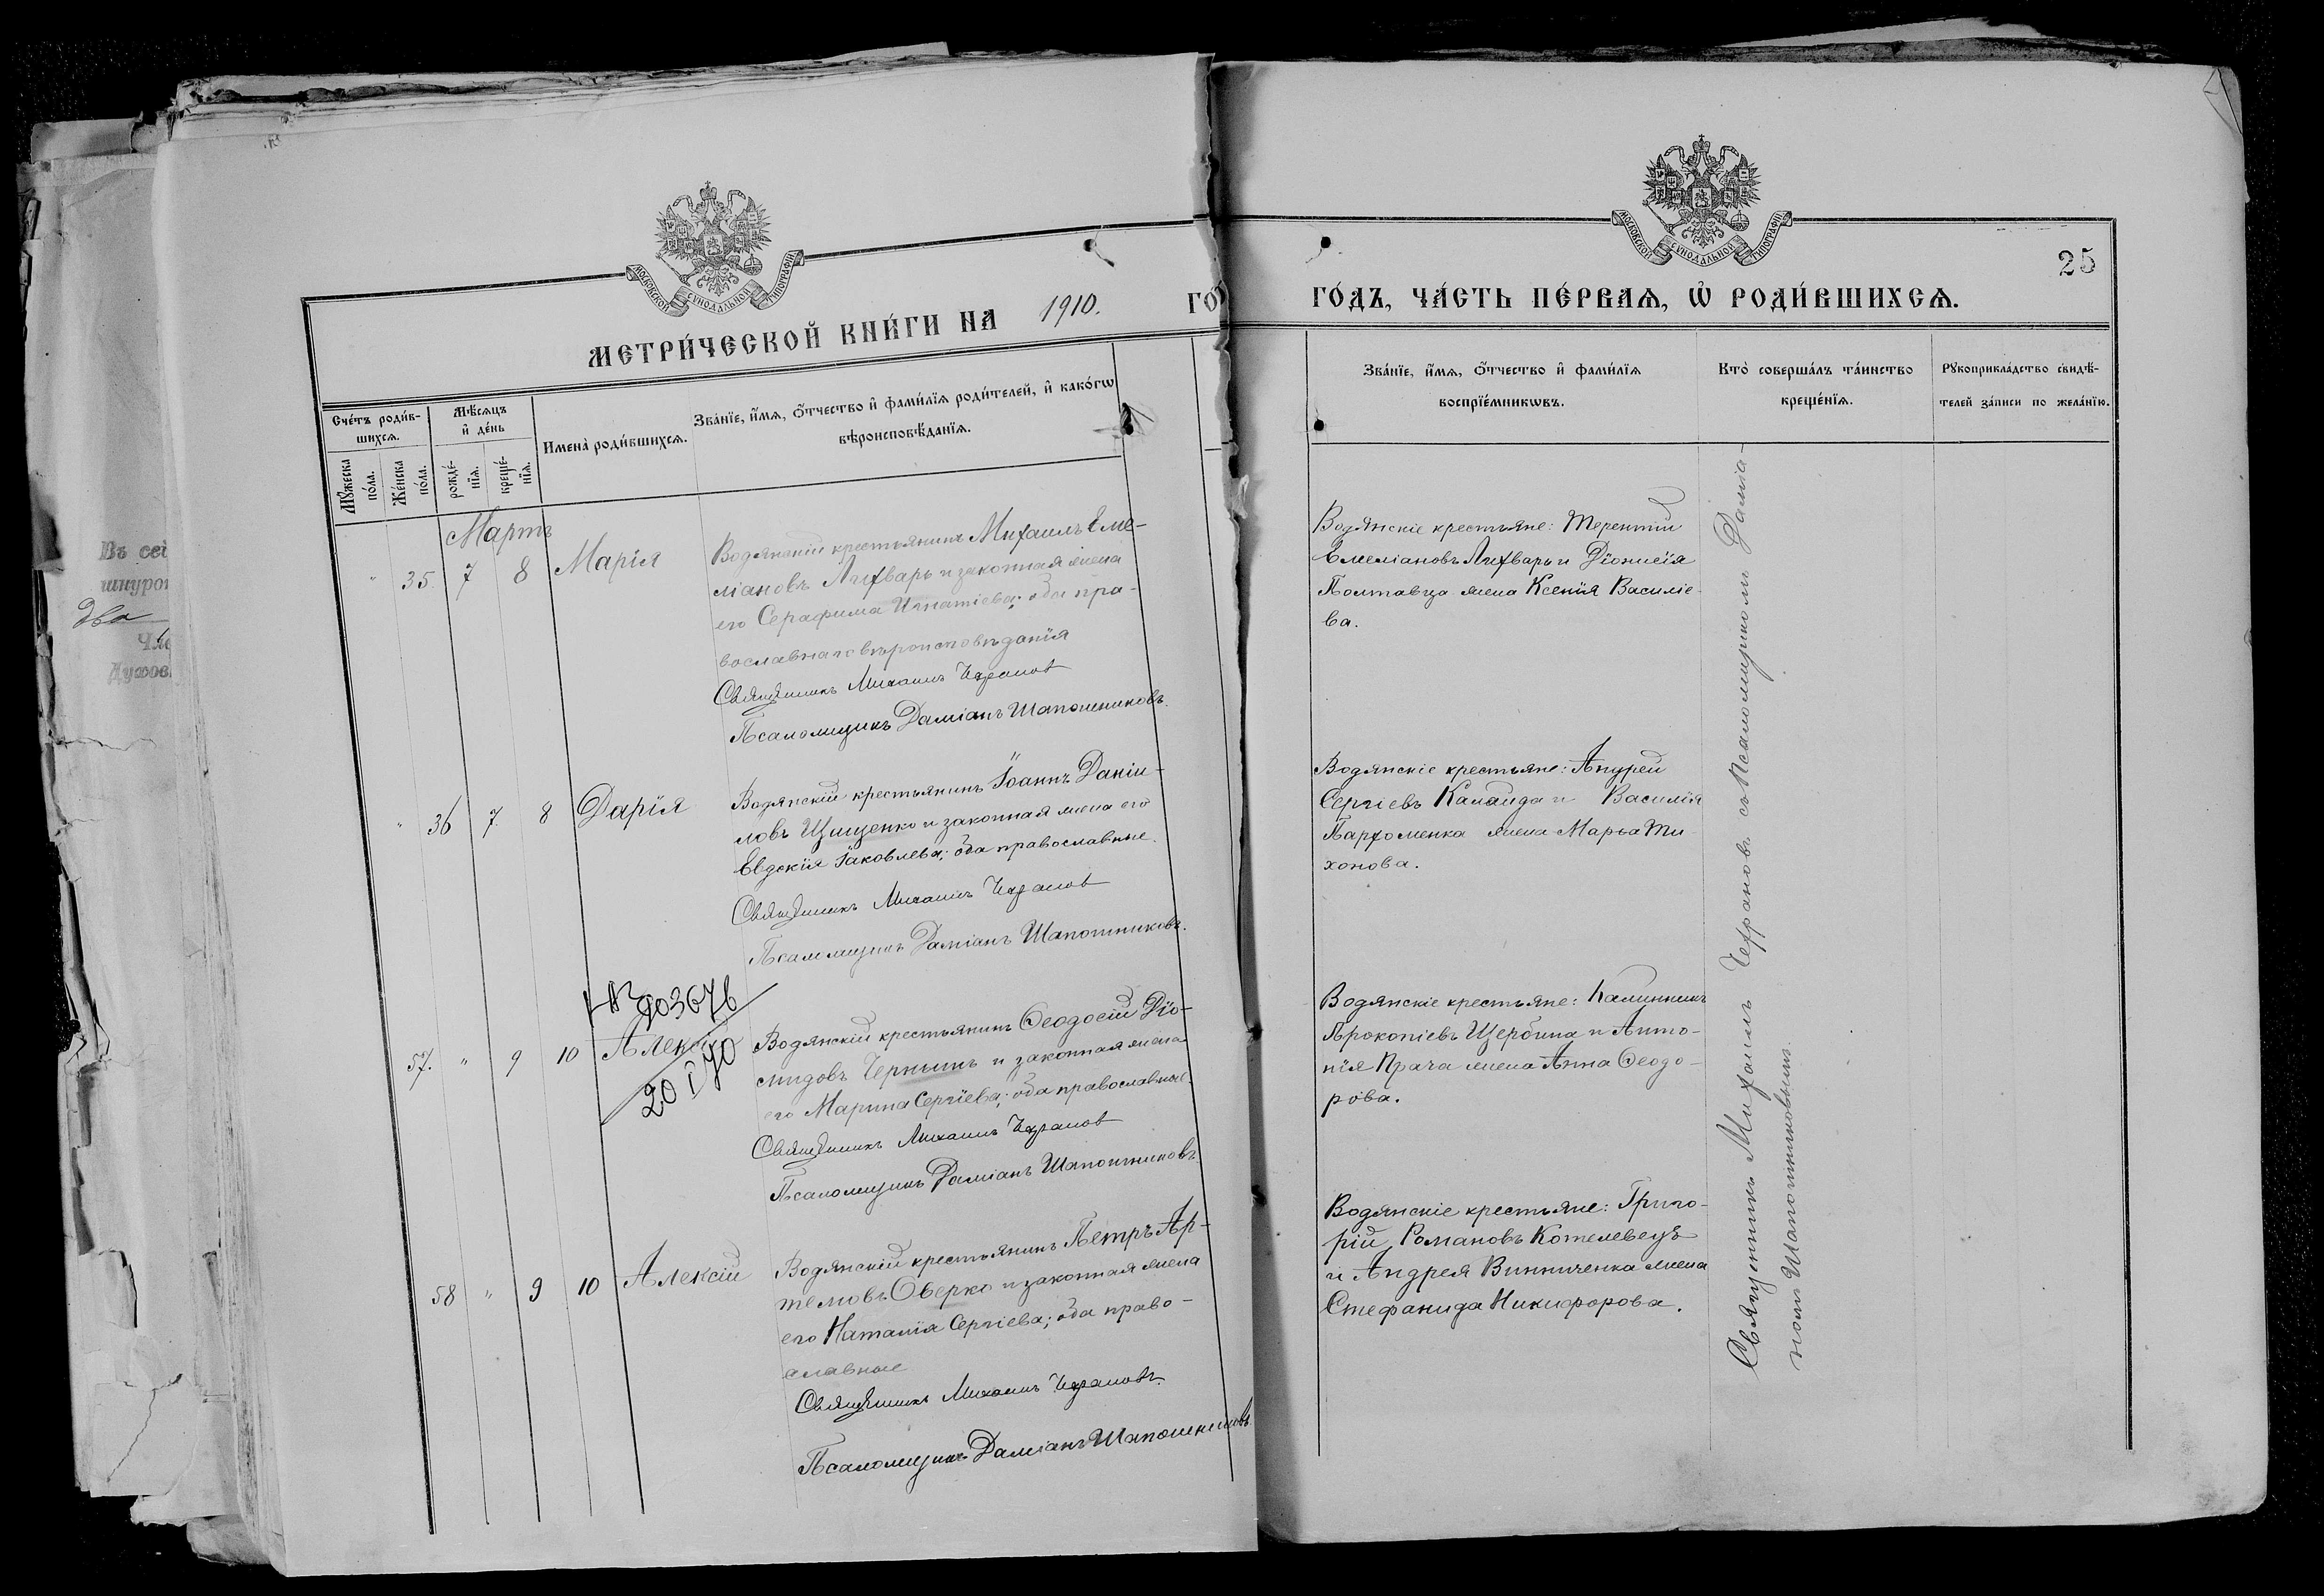 МОСКОВСКОЙ СѴНОДАЛЬНОЙ ТИПОГРАФІИ
МЕТРИ́ЧЕСКОЙ КНИ́ГИ НА 1910. ГО
Сче́тъ роди́в-
шихсѧ.
Мꙋ́жеска
по́ла.
Же́нска
по́ла.
Мѣ́сѧцъ
и҆ де́нь
рожде́-
нїѧ.
креще́-
нїѧ.
И҆мена̀ роди́вшихсѧ.
Зва́нїе, и҆́мѧ, ѻ҆́тчество и҆ фами́лїѧ роди́телей, и҆ како́гѡ
вѣроисповѣ́данїѧ.
Мартъ
" 35. 7 8 Марія
Водянскій крестьянинъ Михаилъ Еме-
ліановъ Лихварь и законная жена
его Серафима Игнатіева; оба пра-
вославнаго вѣроисповѣданія
Священникъ Михаилъ Чефранов
Псаломщикъ Даміанъ Шапошниковъ.
" 36 7. 8 Дарія
Водянскій крестьянинъ Іоаннъ Даніи-
ловъ Ищенко и законная жена его
Евдокія Іаковлева; оба православные.
Священникъ Михаилъ Чефранов
Псаломщикъ Даміанъ Шапошниковъ.
903676
20 I 70
57. " 9 10 Алексій
Водянскій крестьянинъ Ѳеодосій Діо-
мидовъ Чернышъ и законная жена
его Марина Сергіева; оба православные.
Священникъ Михаилъ Чефранов
Псаломщикъ Даміанъ Шапошниковъ.
58 " 9 10 Алексій
Водянскій крестьянинъ Петръ Ар-
темовъ Оверко и законная жена
его Наталія Сергіева; оба право-
славные
Священникъ Михаилъ Чефрановъ.
Псаломщикъ Даміанъ Шапошниковъ
Въ сей
шнуро
Два
Духов
МОСКОВСКОЙ СѴНОДАЛЬНОЙ ТИПОГРАФІИ
25
ГО́ДЪ, ЧА́СТЬ ПЕ́РВАѦ, Ѡ҆ РОДИ́ВШИХСѦ.
Зва́нїе, и҆́мѧ, ѻ҆́тчество и҆ фами́лїѧ
воспрїе́мникѡвъ.
Кто̀ соверша́лъ та́инство
креще́нїѧ.
Рꙋкоприкла́дство свидѣ́-
телей за́писи по жела́нїю.
Водянскіе крестьяне: Терентій
Емеліановъ Лихварь и Діонисія
Полтавца жена Ксенія Василіе-
ва.
Водянскіе крестьяне: Андрей
Сергіевъ Калайда и Василія
Пархоменка жена Марѳа Ти-
хонова.
Водянскіе крестьяне: Калинникъ
Прокопіевъ Щербина и Анто-
нія Прача жена Анна Ѳеодо-
рова.
Водянскіе крестьяне: Григо-
рій Романовъ Котелевецъ
и Андрея Винниченка жена
Стефанида Никифорова.
Священникъ Михаилъ Чефрановъ съ Псаломщикомъ Даміа-
номъ Шапошниковымъ.